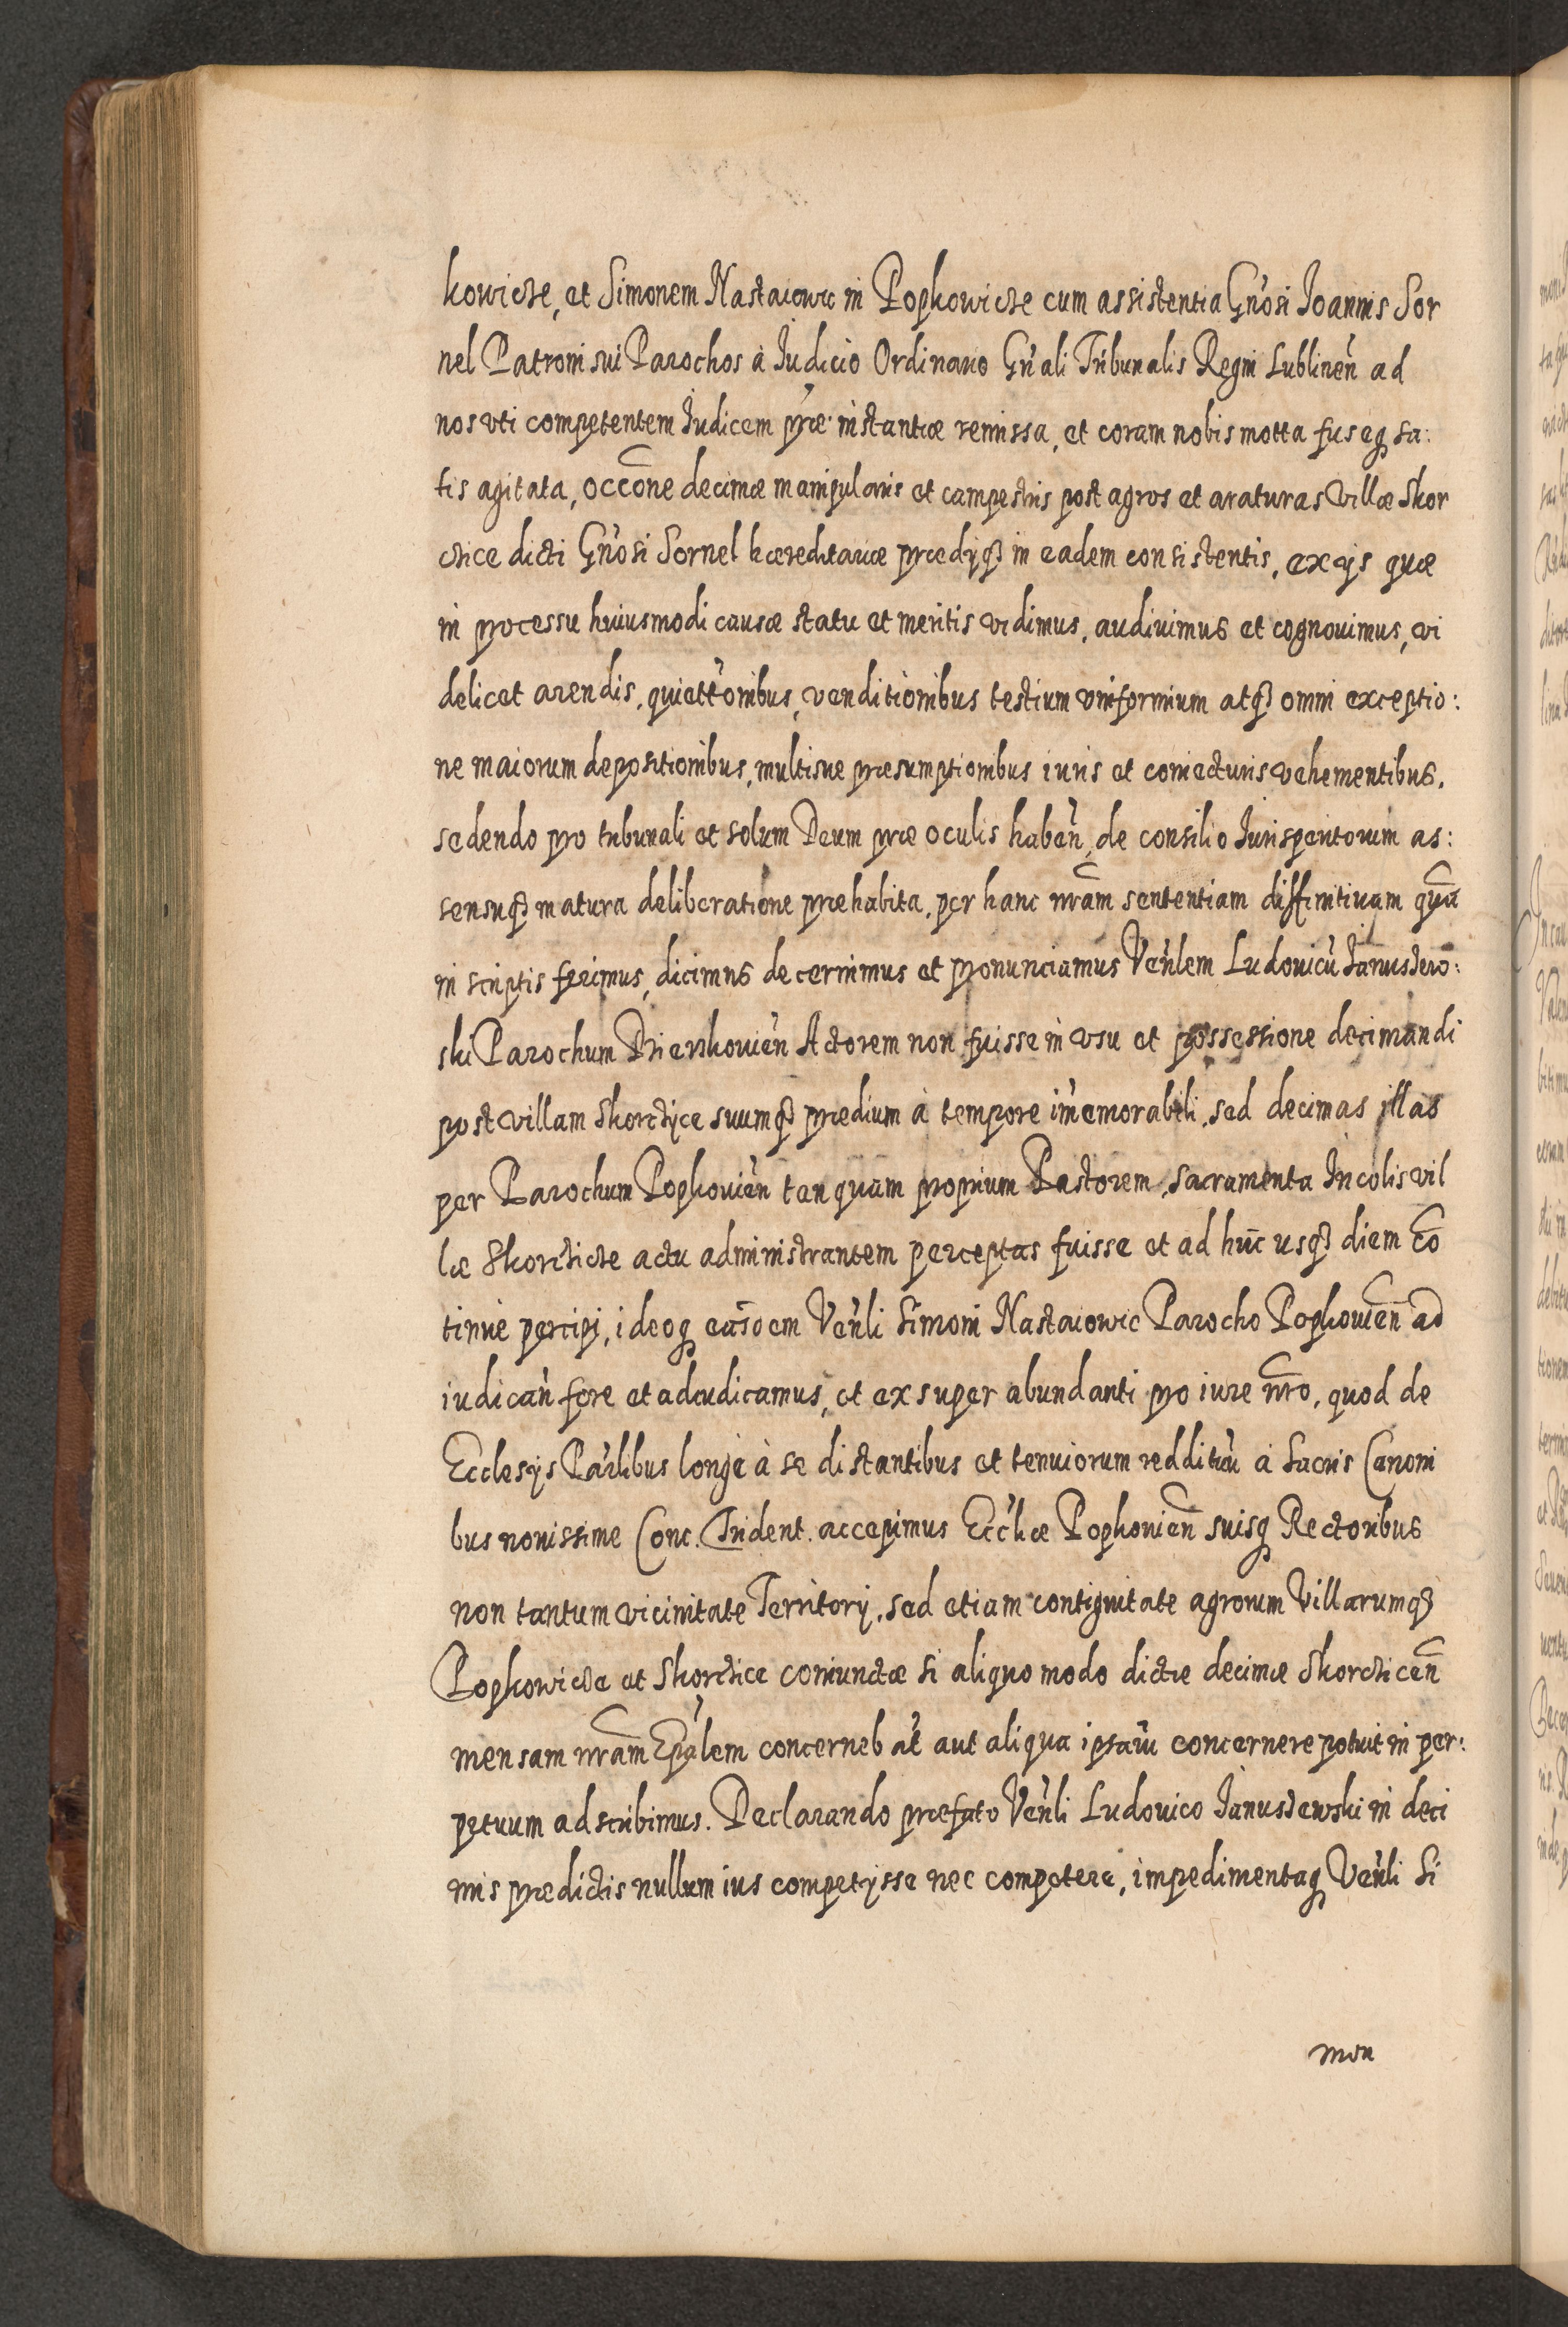 kowicze, et Simonem Nastaiowic in Popkowicze cum assistentia Gn̄osi Ioannis Sor
nel Patroni sui Parochos à Iudicio Ordinario Gn̄ali Tribunalis Regni Lublinen̄ ad
nos vti competentem Iudicem p̄rae instantiae remissa, et coram nobis motta fuseq̨ sa:
tis agitata, occōne decimae manipularis et campestris post agros et araturas villae Skor
czice dicti Gn̄osi Sornel haereditariae praedijq̨ in eadem consistentis, ex ijs quae
in processu huiusmodi causae statu et meritis vidimus, audiuimus et cognouimus, vi
delicet arendis, quiett̄onibus, venditionibus testium vniformium atq̨ omni exceptio:
ne maiorum depositionibus, multisue praesumptionibus iuris et coniecturis vehementibus.
sedendo pro tribunali et solum Deum prae oculis haben̄, de consilio Iurisperitorum as:
sensuq̨ matura deliberatione praehabita, per hanc nr̄am sententiam diffinitiuam quā
in scriptis ferimus, dicimus decernimus et pronunciamus Ven̄lem Ludouicū Ianuszeio:
ski Parochum Dzierzkouien̄ Actorem non fuisse in vsu et possessione decimandi
post villam Skorczyce suumq̨ praedium à tempore im̄emorabili, sed decimas illas
per Parochum Popkouien̄ tanquam proprium Pastorem, sacramenta Incolis vil
lae Skorczicze actu administrantem perceptas fuisse et ad hūc usq̨ diem cō
tinuè percipi, ideoq̨ easdem Ven̄li Simoni Nastaiowic Parocho Popkouien̄ ad
iudican̄ fore et adiudicamus, et ex super abundanti pro iure nr̄o, quod de
Ecclesijs Par̄libus longè à se distantibus et tenuiorum reddituū à Sacris Canoni
bus nouissime Conc. Trident. accepimus Eccl̄iae Popkouien̄ suisq̨ Rectoribus
non tantum vicinitate Territorij, sed etiam contiguitate agrorum Villarumq̨
Popkowicze et Skorczice coniunctae si aliquo modo dictae decimae Skorczicen̄
mensam nr̄am Ep̄alem concernebāt aut aliqua ipsarū concernere potuit in per:
petuum adscribimus. Declarando praefato Ven̄li Ludouico Ianuszewski in deci
mis praedictis nullum ius competijsse nec competere, impedimentaq̨ Ven̄li Si
mon